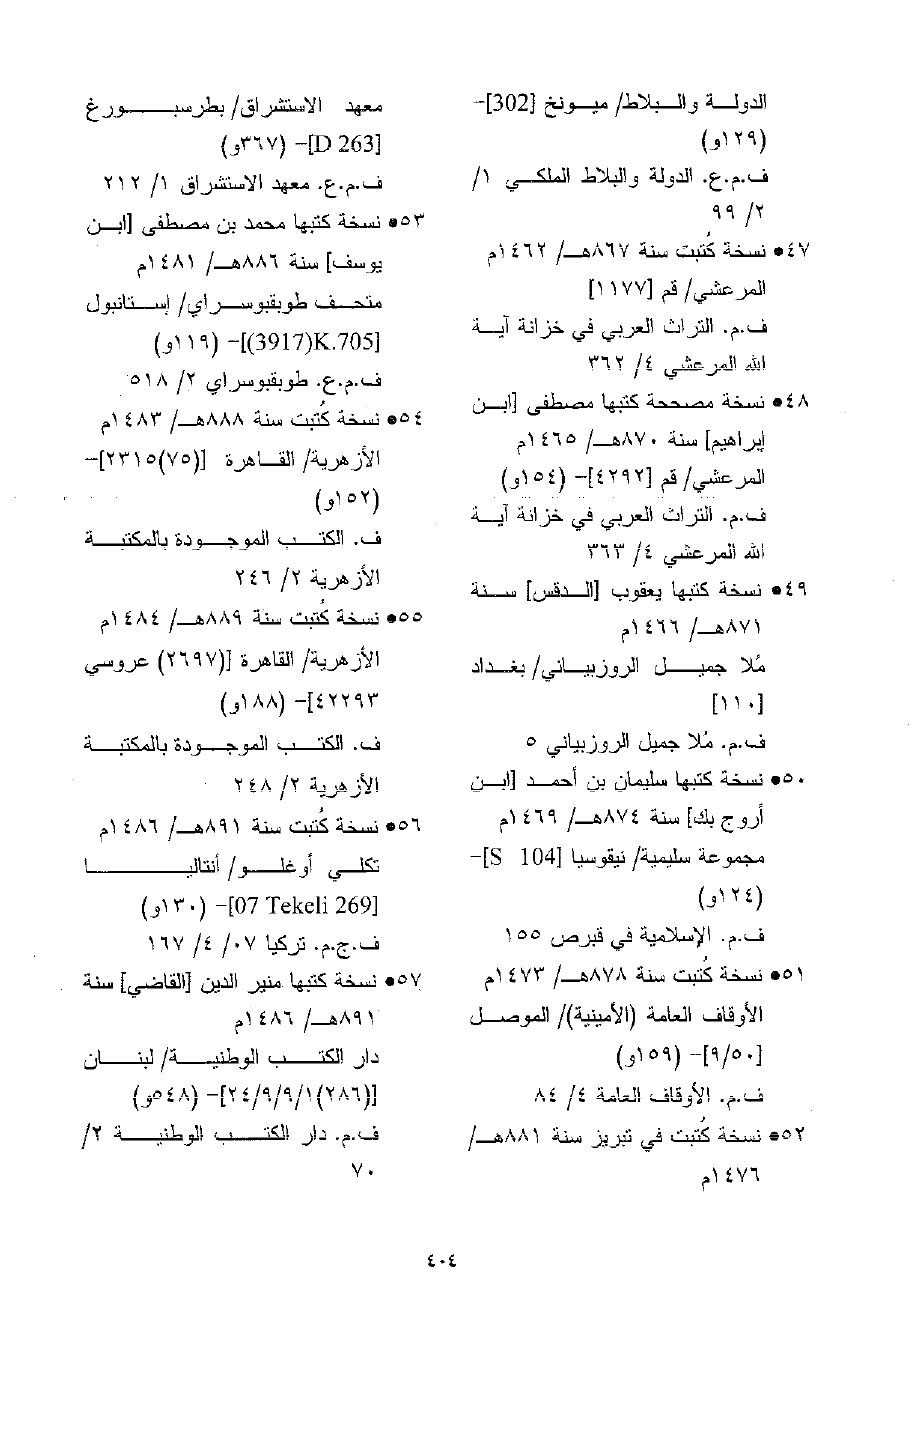 الدولة والبلاط/ ميونخ [302]-
(١٢٩و)
ف.م.ع. الدولة والبلاط الملكي ١/
٢/ ٩٩
٤٧• نسخة كُتبت سنة ٨٦٧هـ/ ١٤٦٢م
المرعشي/ قم [١١٧٧]
ف.م. التراث العربي في خزانة آية
الله المرعشي ٤/ ٣٦٢
٤٨• نسخة مصححة كتبها مصطفى [ابن
إبراهيم] سنة ٨٧٠هـ/ ١٤٦٥م
المرعشي/ قم [٤٢٩٢]- (١٥٤و)
ف.م. التراث العربي في خزانة آية
الله المرعشي ٤/ ٣٦٣
٤٩• نسخة كتبها يعقوب [الدقس] سنة
٨٧١هـ/ ١٤٦٦م
مُلا جميل الروزبياني/ بغداد
[١١٠]
ف.م. مُلا جميل الروزبياني ٥
٥٠• نسخة كتبها سليمان بن أحمد [ابن
أروج بك] سنة ٨٧٤هـ/ ١٤٦٩م
مجموعة سليمية/ نيقوسيا [S 104]-
(١٢٤و)
ف.م. الإسلامية في قبرص ١٥٥
٥١• نسخة كُتبت سنة ٨٧٨هـ/ ١٤٧٣م
الأوقاف العامة (الأمينية)/ الموصل
[٩/٥٠]- (١٥٩و)
ف.م. الأوقاف العامة ٤/ ٨٤
٥٢• نسخة كُتبت في تبريز سنة ٨٨١هـ/
١٤٧٦م
معهد الاستشراق/ بطرسبورغ
[D 263]- (٣٦٧و)
ف.م.ع. معهد الاستشراق ١/ ٢١٢
٥٣• نسخة كتبها محمد بن مصطفى [ابن
يوسف] سنة ٨٨٦هـ/ ١٤٨١م
متحف طوبقبوسراي/ إستانبول
[(3917)K.705]- (١١٩و)
ف.م.ع. طوبقبوسراي ٢/ ٥١٨
٥٤• نسخة كُتبت سنة ٨٨٨هـ/ ١٤٨٣م
الأزهرية/ القاهرة [(٧٥)٢٣١٥]-
(١٥٢و)
ف. الكتب الموجودة بالمكتبة
الأزهرية ٢/ ٢٤٦
٥٥• نسخة كُتبت سنة ٨٨٩هـ/ ١٤٨٤م
الأزهرية/ القاهرة [(٢٦٩٧) عروسي
٤٢٢٩٣]- (١٨٨و)
ف. الكتب الموجودة بالمكتبة
الأزهرية ٢/ ٢٤٨
٥٦• نسخة كُتبت سنة ٨٩١هـ/ ١٤٨٦م
تكلي أوغلو/ أنتاليا
[07 Tekeli 269]- (١٣٠و)
ف.ج.م. تركيا ٠٧/ ٤/ ١٦٧
٥٧• نسخة كتبها منير الدين [القاضي] سنة
٨٩١هـ/ ١٤٨٦م
دار الكتب الوطنية/ لبنان
[(٢٨٦)٢٤/٩/٩/١]- (٥٤٨و)
ف.م. دار الكتب الوطنية ٢/
٧٠
٤٠٤